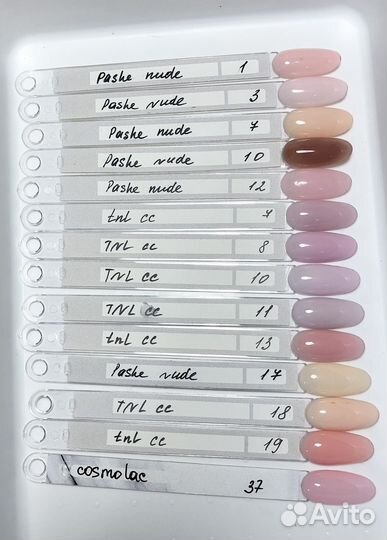 Pashe nude 1
Pashe nude 3
Pashe nude 7
Pashe nude 10
Pashe nude 12
tnl cc 7
TNL cc 8
TNL cc 10
TNL cc 11
tnl cc 13
Pashe nude 17
TNL cc 18
tnl cc 19
cosmolac 37
Avito